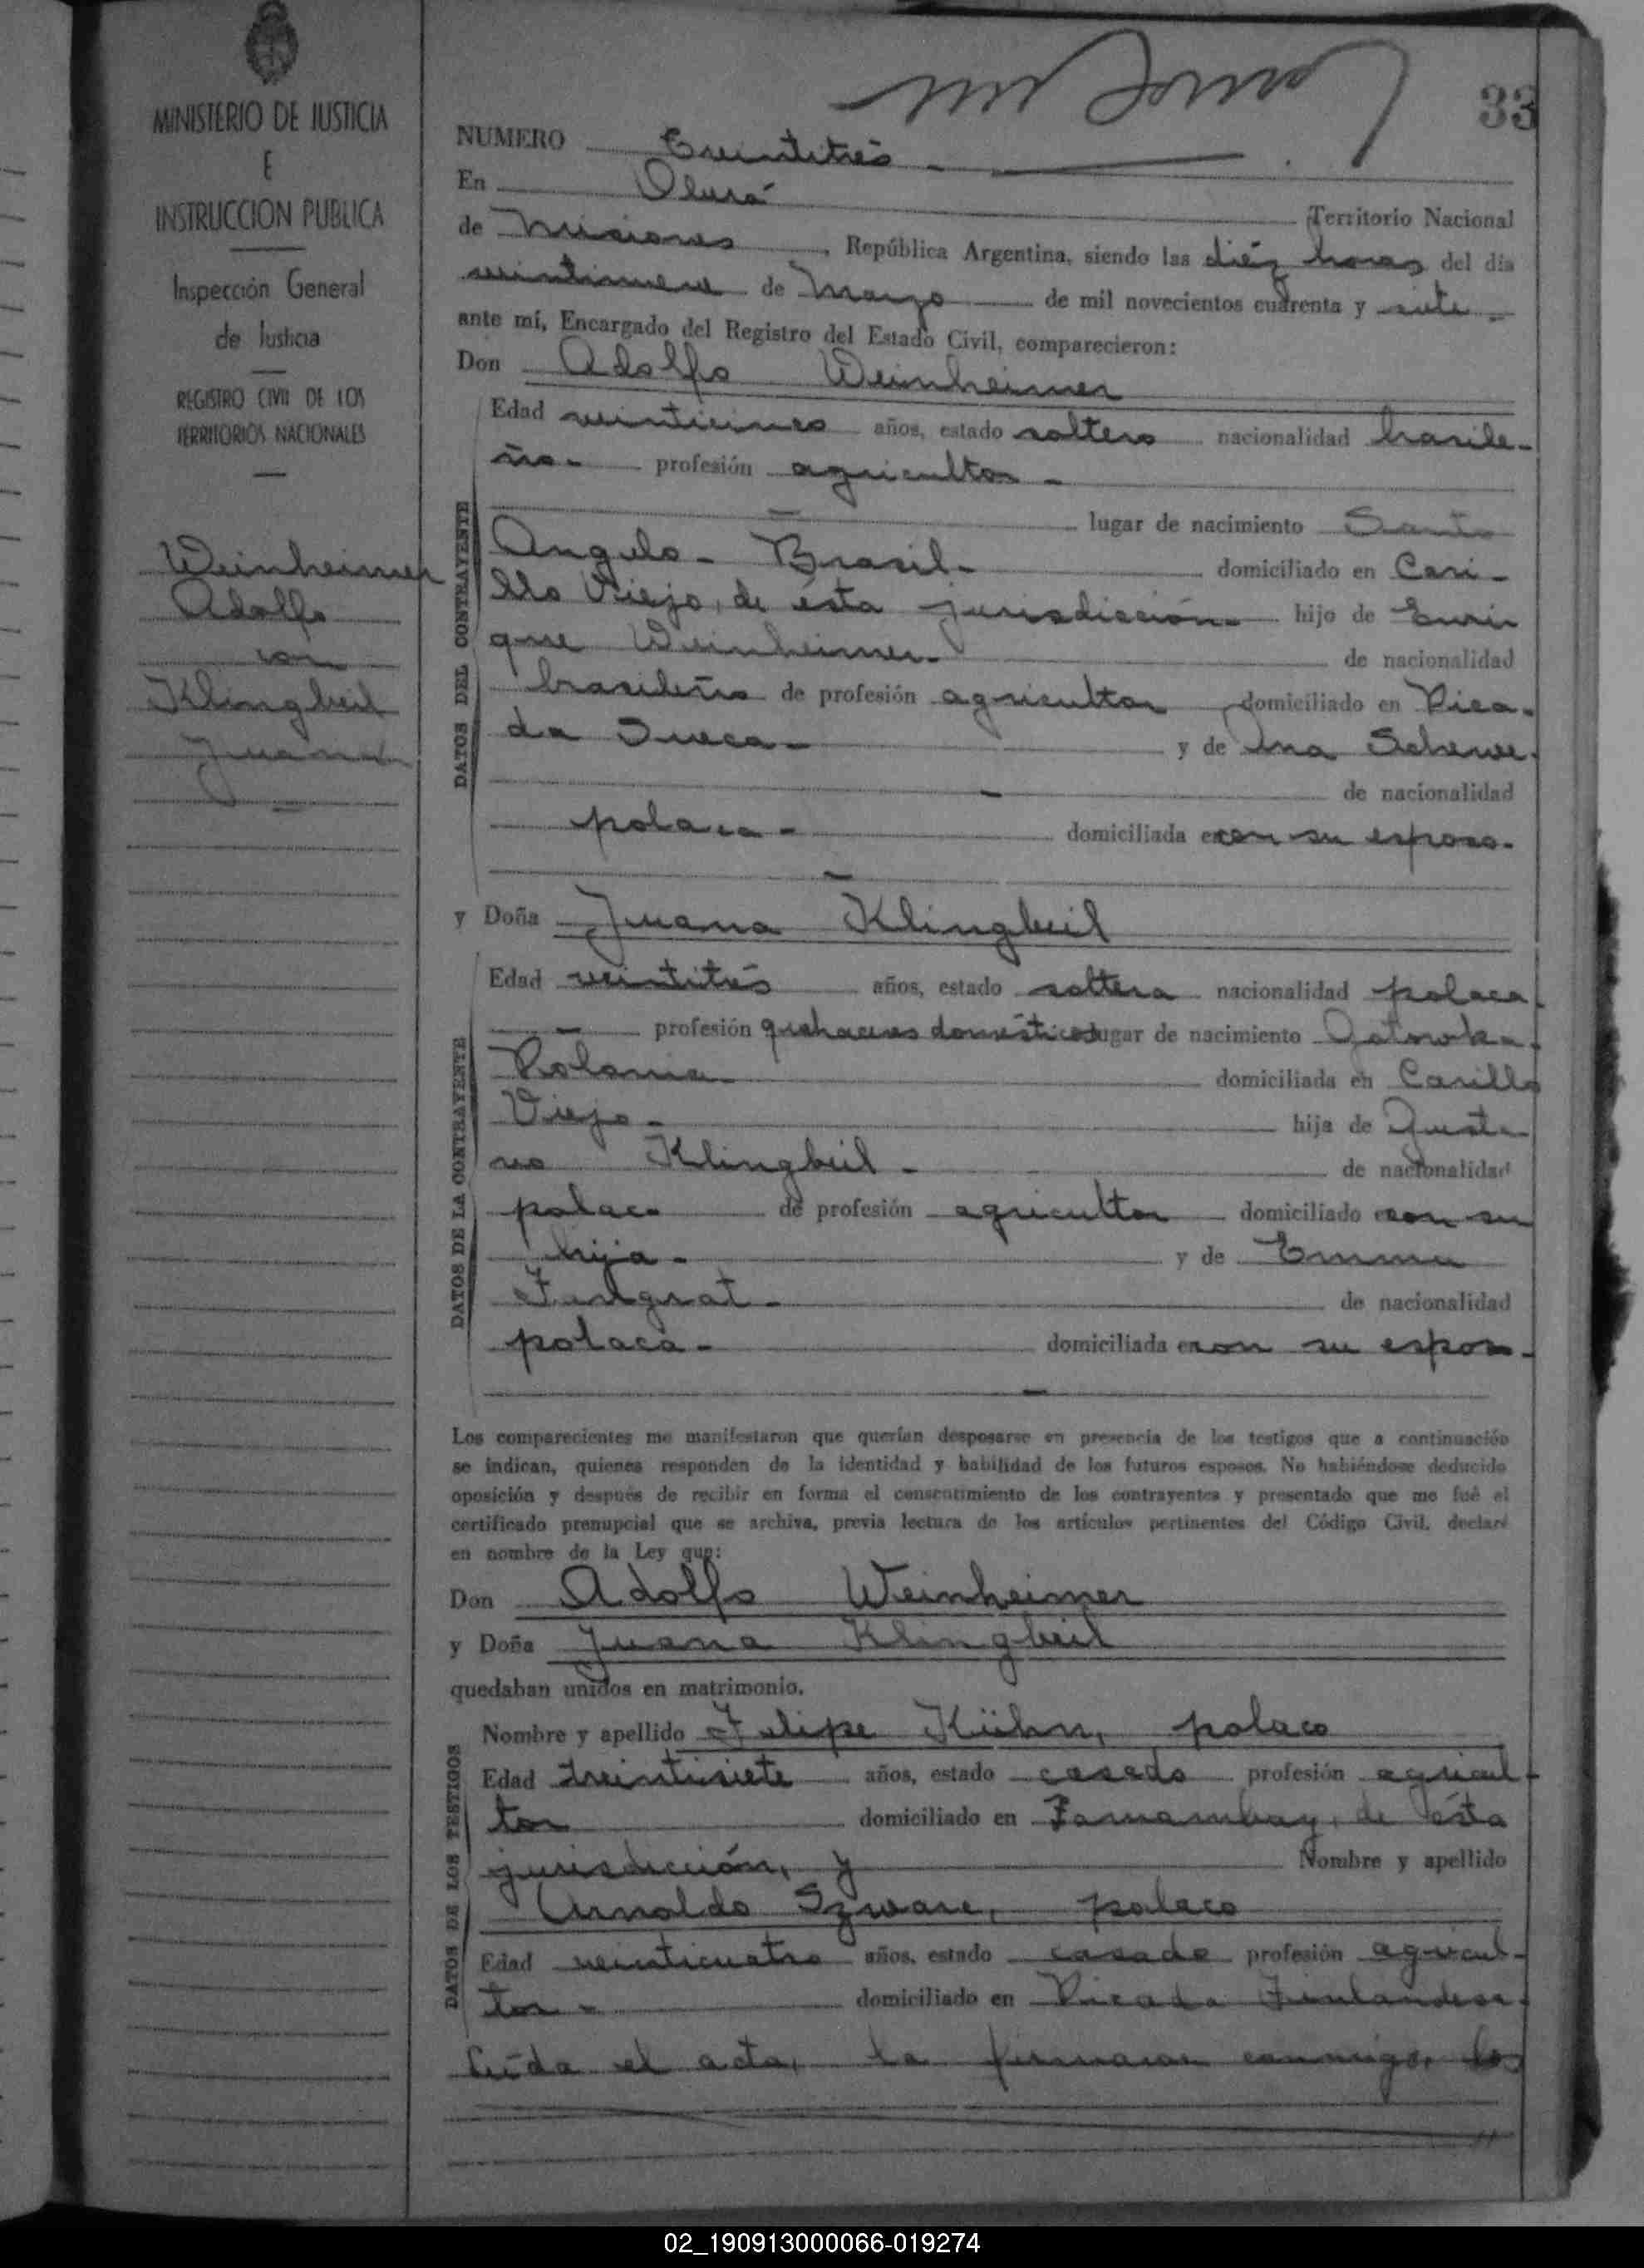 MINISTERIO DE JUSTICIA
E
INSTRUCCION PUBLICA
Inspección General
de Justicia
REGISTRO CIVIL DE LOS
TERRITORIOS NACIONALES
Weinheimer
Adolfo
con
Klingbeil
Juana
33
NUMERO Treintitrés
En Oberá Territorio Nacional
de Misiones, República Argentina, siendo las diéz horas del día
veintinueve de Marzo de mil novecientos cuarenta y siete
ante mí, Encargado del Registro del Estado Civil, comparecieron:
Don Adolfo Weinheimer
Edad veinticinco años, estado soltero nacionalidad brasile-
ño- profesión agricultor -
lugar de nacimiento Santo
Angelo - Brasil- domiciliado en Cari-
llo Viejo, de ésta jurisdicción- hijo de Enri
que Weinheimer- de nacionalidad
brasileño de profesión agricultor, domiciliado en Pica-
da Sueca- y de Ana
de nacionalidad
polaca- domiciliada en con su esposo.
y Doña Juana Klingbeil
Edad veintitrés años, estado soltera nacionalidad polaca
profesión quehaceres domésticos lugar de nacimiento
Polonia- domiciliada en Carillo
Viejo- hija de Gusta
vo Klingbeil - de nacionalidad
polaco de profesión agricultor domiciliado con su
hija- y de Emma
de nacionalidad
polaca- domiciliada en con su esposo-
Los comparecientes me manifestaron que querían desposarse en presencia de los testigos que a continuación
se indican, quienes responden de la identidad y habilidad de los futuros esposos. No habiéndose deducido
oposición y después de recibir en forma el consentimiento de los contrayentes y presentado que me fué el
certificado prenupcial que se archiva, previa lectura de los artículos pertinentes del Código Civil, declaré
en nombre de la Ley que:
Don Adolfo Weinheimer
y Doña Juana Klingbeil
quedaban unidos en matrimonio.
Nombre y apellido Felipe Kühn, polaco
Edad treintisiete años, estado casado profesión agricul-
tor domiciliado en de ésta
jurisdicción, y Nombre y apellido
Arnaldo Szwarc, polaco
Edad veinticuatro años, estado casado profesión agricul-
tor - domiciliado en Picada Finlandesa-
Leída el acta, la firmaron conmigo, los
DATOS DEL CONTRAYENTE
DATOS DE LA CONTRAYENTE
DATOS DE LOS TESTIGOS
02_190913000066-019274